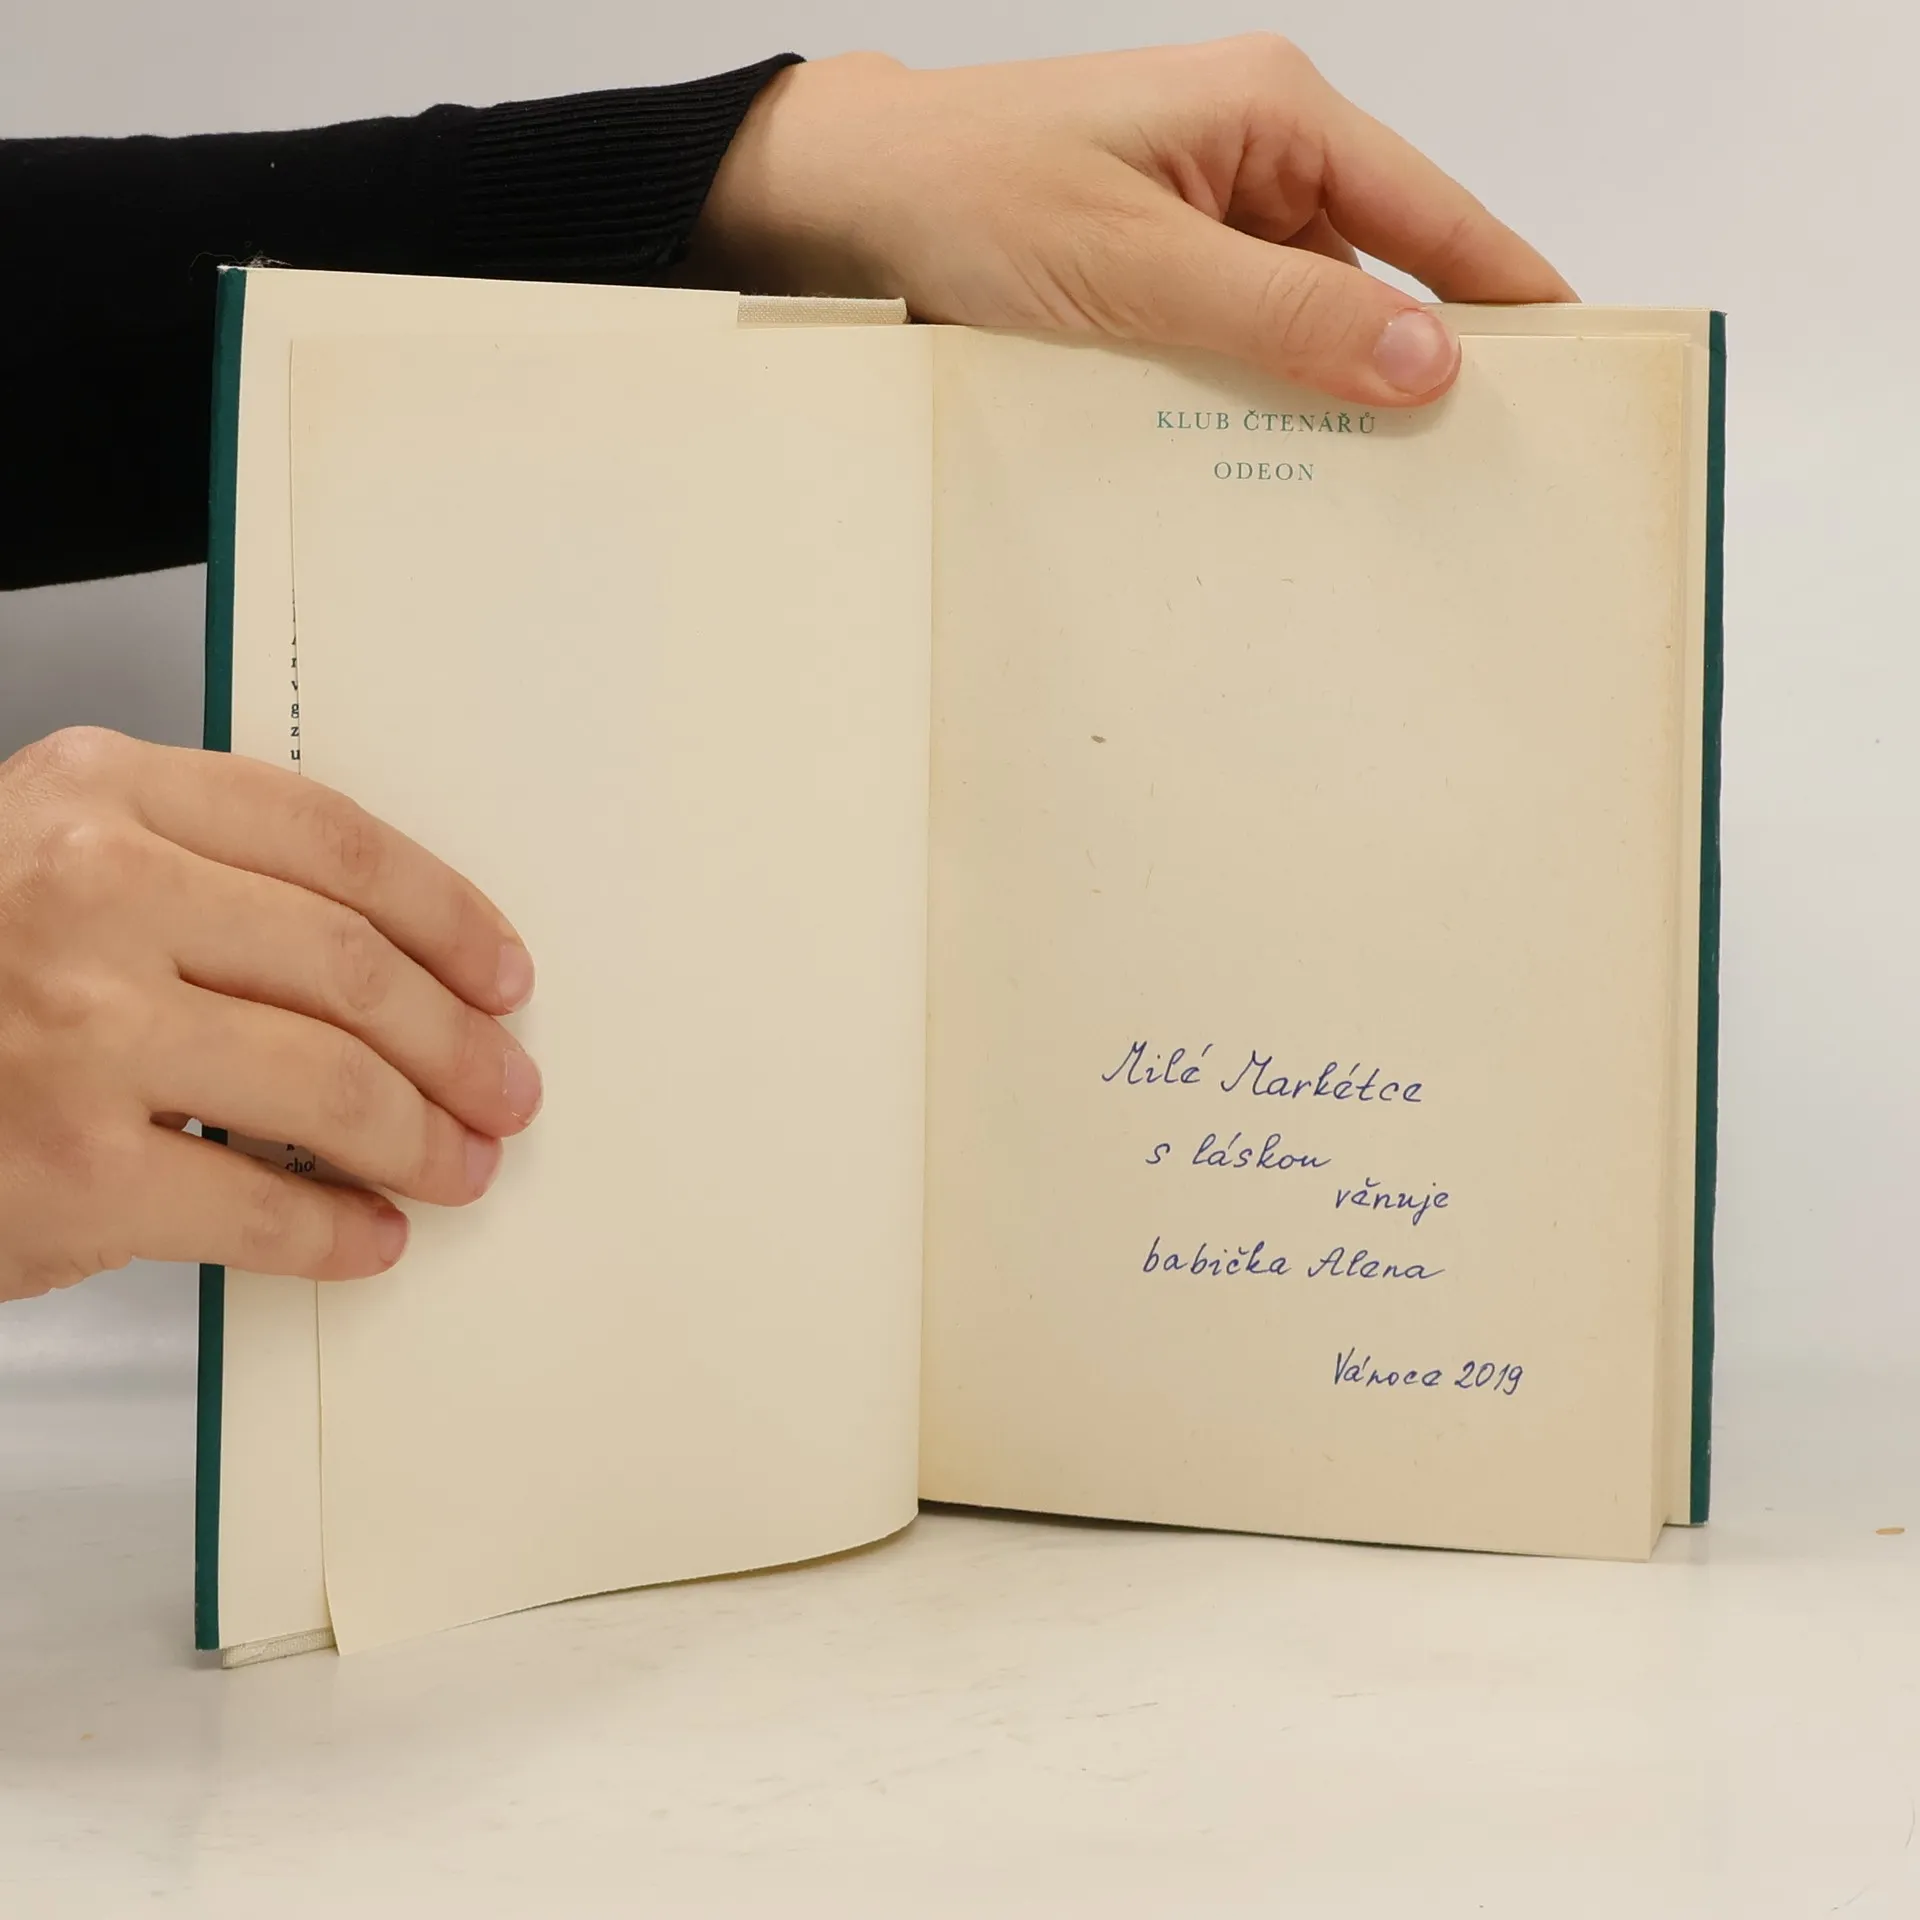 r
v
g
z
u
cho
KLUB ČTENÁŘŮ
ODEON
Milé Markétce
s láskou
věnuje
babička Alena
Vánoce 2019